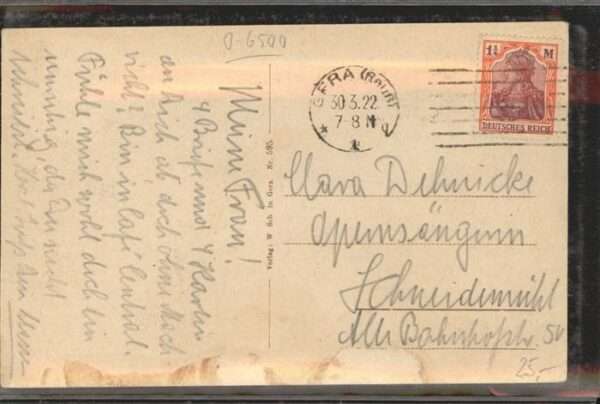 0-6500
Meine Frau!
4 Briefe und 4 Karten
an Dich ob doch ohne Nach
richt? Bin in Café Central.
Fühle mich wohl doch bin
unruhig, da Du nicht
schreibst.
Verlag: M Beh in Gera Nr. 595
GERA (Reuß)
30.3.22
7-8 N
1¼ M
DEUTSCHES REICH
Clara Dehnicke
Opernsängerin
Schneidemühl
Alte Bahnhofstr. 50
25,-